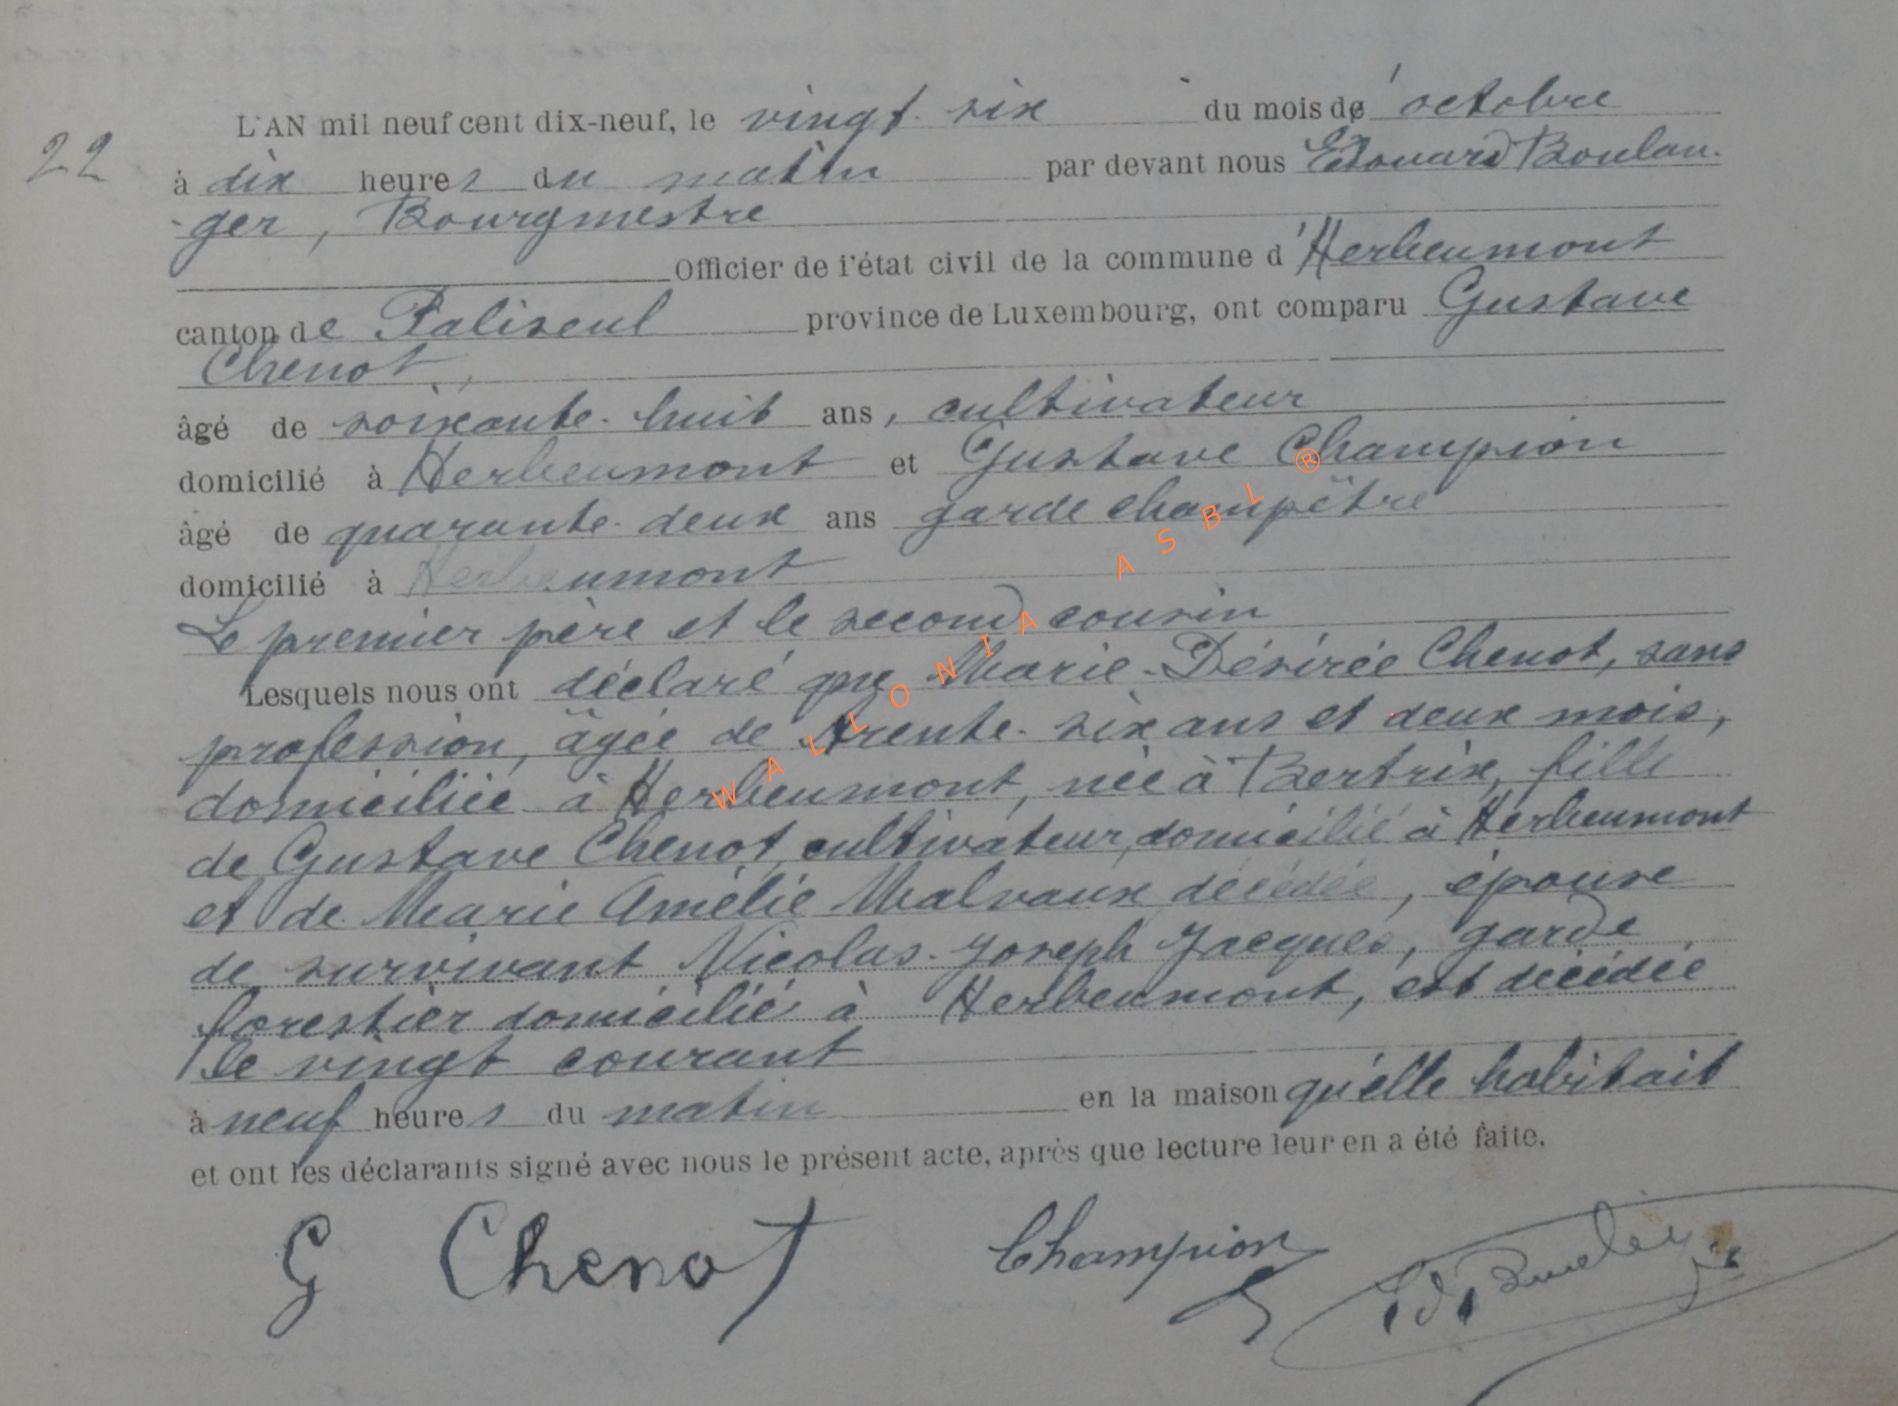 22
L'AN mil neuf cent dix-neuf, le vingt-six du mois de octobre
à dix heures du matin par devant nous Edouard Boulan-
-ger, Bourgmestre
Officier de l'état civil de la commune d'Herbeumont
canton de Paliseul province de Luxembourg, ont comparu Gustave
Chenot,
âgé de soixante-huit ans, cultivateur
domicilié à Herbeumont et Gustave Champion
âgé de quarante-deux ans garde champêtre
domicilié à Herbeumont
Le premier père et le second cousin
Lesquels nous ont déclaré que Marie-Désirée Chenot, sans
profession, âgée de trente-six ans et deux mois,
domiciliée à Herbeumont, née à Bertrix, fille
de Gustave Chenot, cultivateur, domicilié à Herbeumont
et de Marie Amélie Malvaux décédée, épouse
de survivant Nicolas-Joseph Jacques, garde
forestier domicilié à Herbeumont, est décédée
le vingt courant
à neuf heures du matin en la maison qu'elle habitait
et ont les déclarants signé avec nous le présent acte, après que lecture leur en a été faite.
G Chenot Champion Ed.
WALLONIA ASBL ®